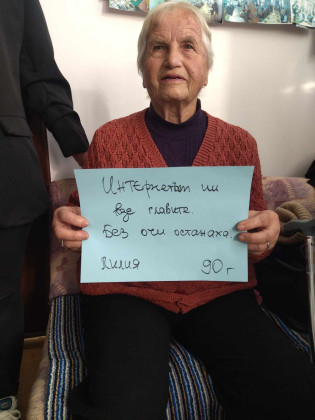 Интернетът ни
взе главите.
Без очи останахме.
Лилия 90 г